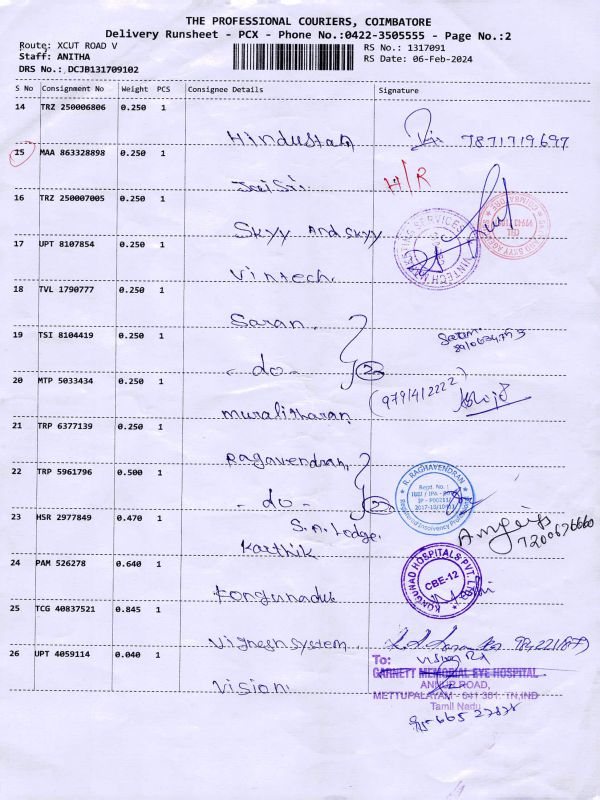 THE PROFESSIONAL COURIERS, COIMBATORE
Delivery Runsheet - PCX - Phone No.:0422-3505555 - Page No.:2
Route: XCUT ROAD V
RS No.: 1317091
Staff: ANITHA
RS Date: 06-Feb-2024
DRS No.: DCJB131709102
S No Consignment No Weight PCS Consignee Details Signature
14 TRZ 250006806 0.250 1
Hindustan 7871719697
15 MAA 863328898 0.250 1
Jai Sri H/R
16 TRZ 250007005 0.250 1
Skyy And Skyy
17 UPT 8107854 0.250 1
Vintech
18 TVL 1790777 0.250 1
Saran
19 TSI 8104419 0.250 1
- do - 2
20 MTP 5033434 0.250 1
(9791412222)
muralitharan
21 TRP 6377139 0.250 1
Ragavendran
22 TRP 5961796 0.500 1
R. RAGHAVENDRAN
Regd. No.:
- do - 2
23 HSR 2977849 0.470 1
S.A. Lodge
Karthik
7200626660
24 PAM 526278 0.640 1
KONGUNAD HOSPITALS PVT. LTD.
CBE-12
Kongunadu
25 TCG 40837521 0.845 1
Vignesh System
26 UPT 4059114 0.040 1
To:
GARNETT MEMORIAL EYE HOSPITAL
ANNUR ROAD,
Vision
METTUPALAYAM - 641 301. TN,IND
Tamil Nadu